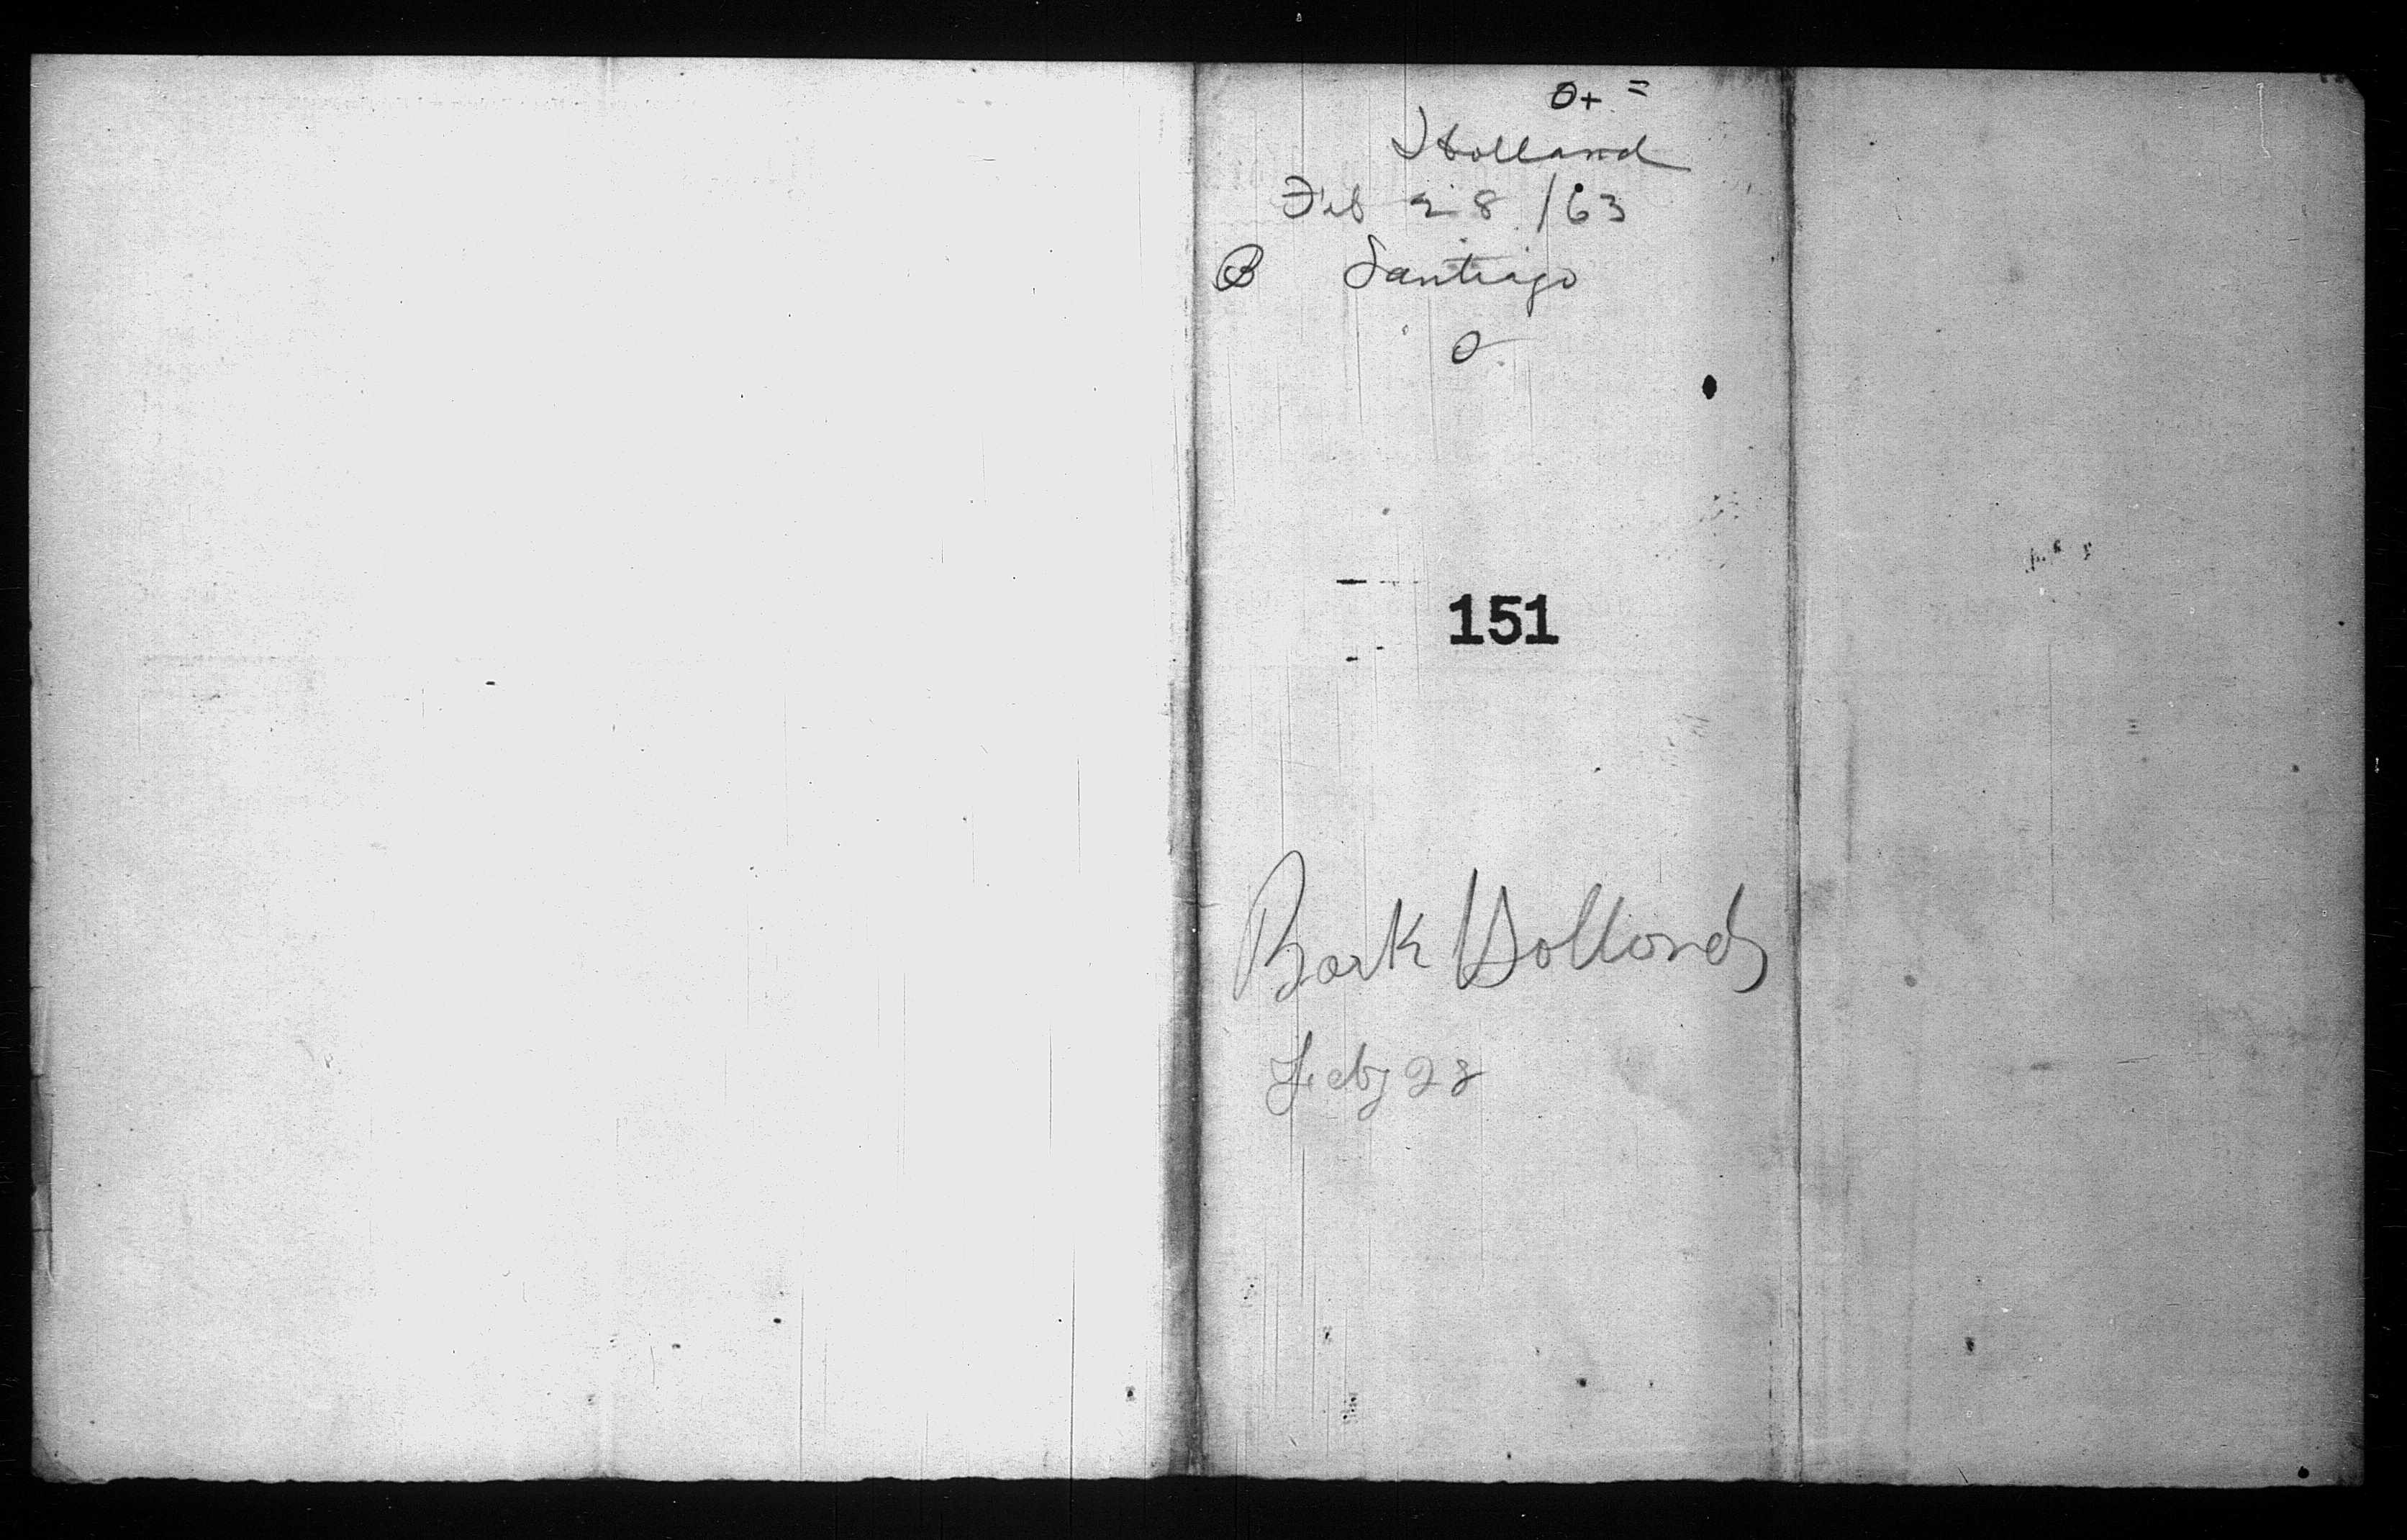 O+ =
Holland
Feb 28 /63
B Santiago
O
151
Bark Holland
Feby 28